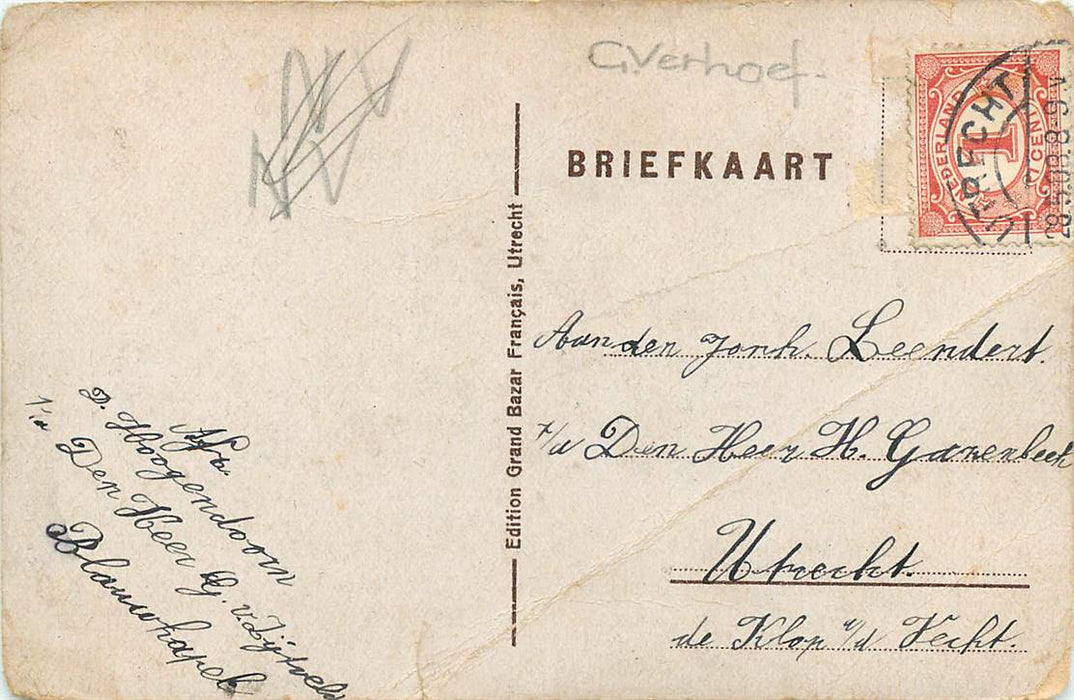 G. Verhoef.
BRIEFKAART
NEDERLAND
1
CENT
UTRECHT
28.5.08.8-9 V
Edition Grand Bazar Français, Utrecht
Aan den Jonh. Leendert.
Den Heer H. Garenbeek
Utrecht.
de Klop a/d Vecht.
Afz
D. Hoogendoorn
Den Heer G. v. Zijtveld
Blauwkapel